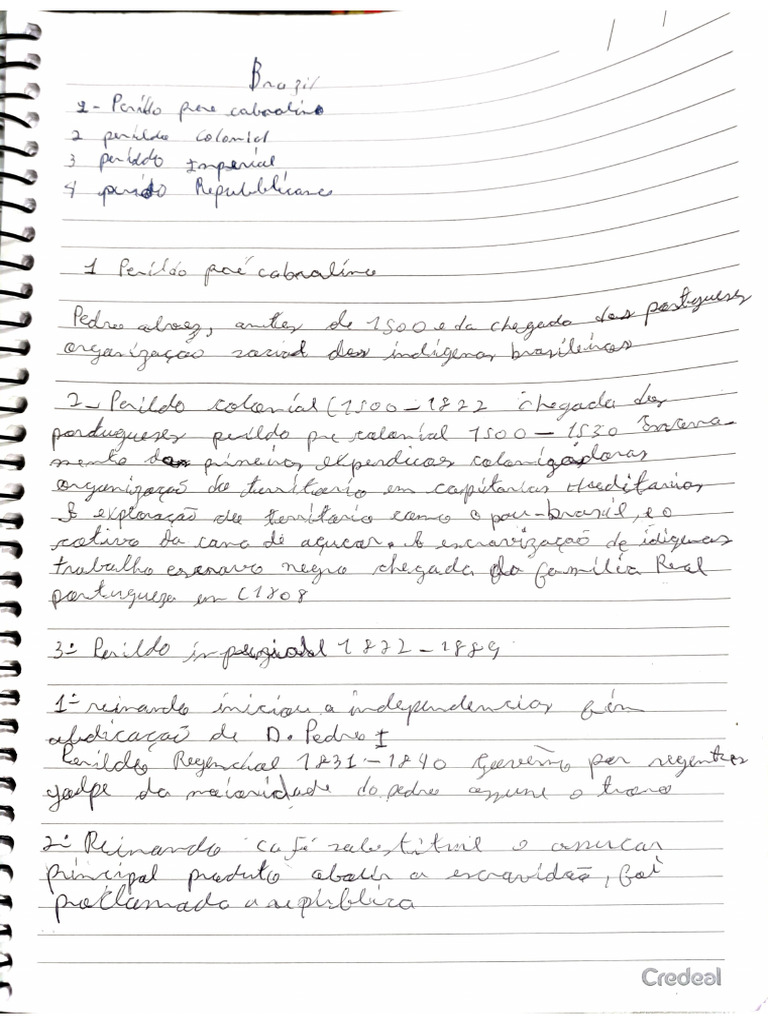 Brazil
1- Perildo pere cabralino
2 perildo colonial
3 períddo Imperial
4 periodo Republicano
1 Perildo pré cabralino
Pedro alvez, antes de 1500 e da chegada dos portugueses
organização social dos indígenas brasileiros
2- Perildo colonial (1500-1822 chegada dos
portugueses perildo pre colonial 1500-1530
mento das primeiros expendicoes colonizadoras
organização do territario em capitarias Hereditarias
A exploração do territario como o pau-brasil, e o
cotivo da cana de açucar. A escravização de idigenas
trabalho escravo negro chegada da família Real
portuguesa em (1808
3- Perildo imperial 1822-1889
1- reinando iniciou a independencias fim
abdicação de D. Pedro I
Perildo Regencial 1831-1840 Governo por regentes
golpe da maioridade do pedro assume o trono
2- Reinando café substituil o assucar
principal produto abolir a escravidão, foi
proclamada a república
Credeal